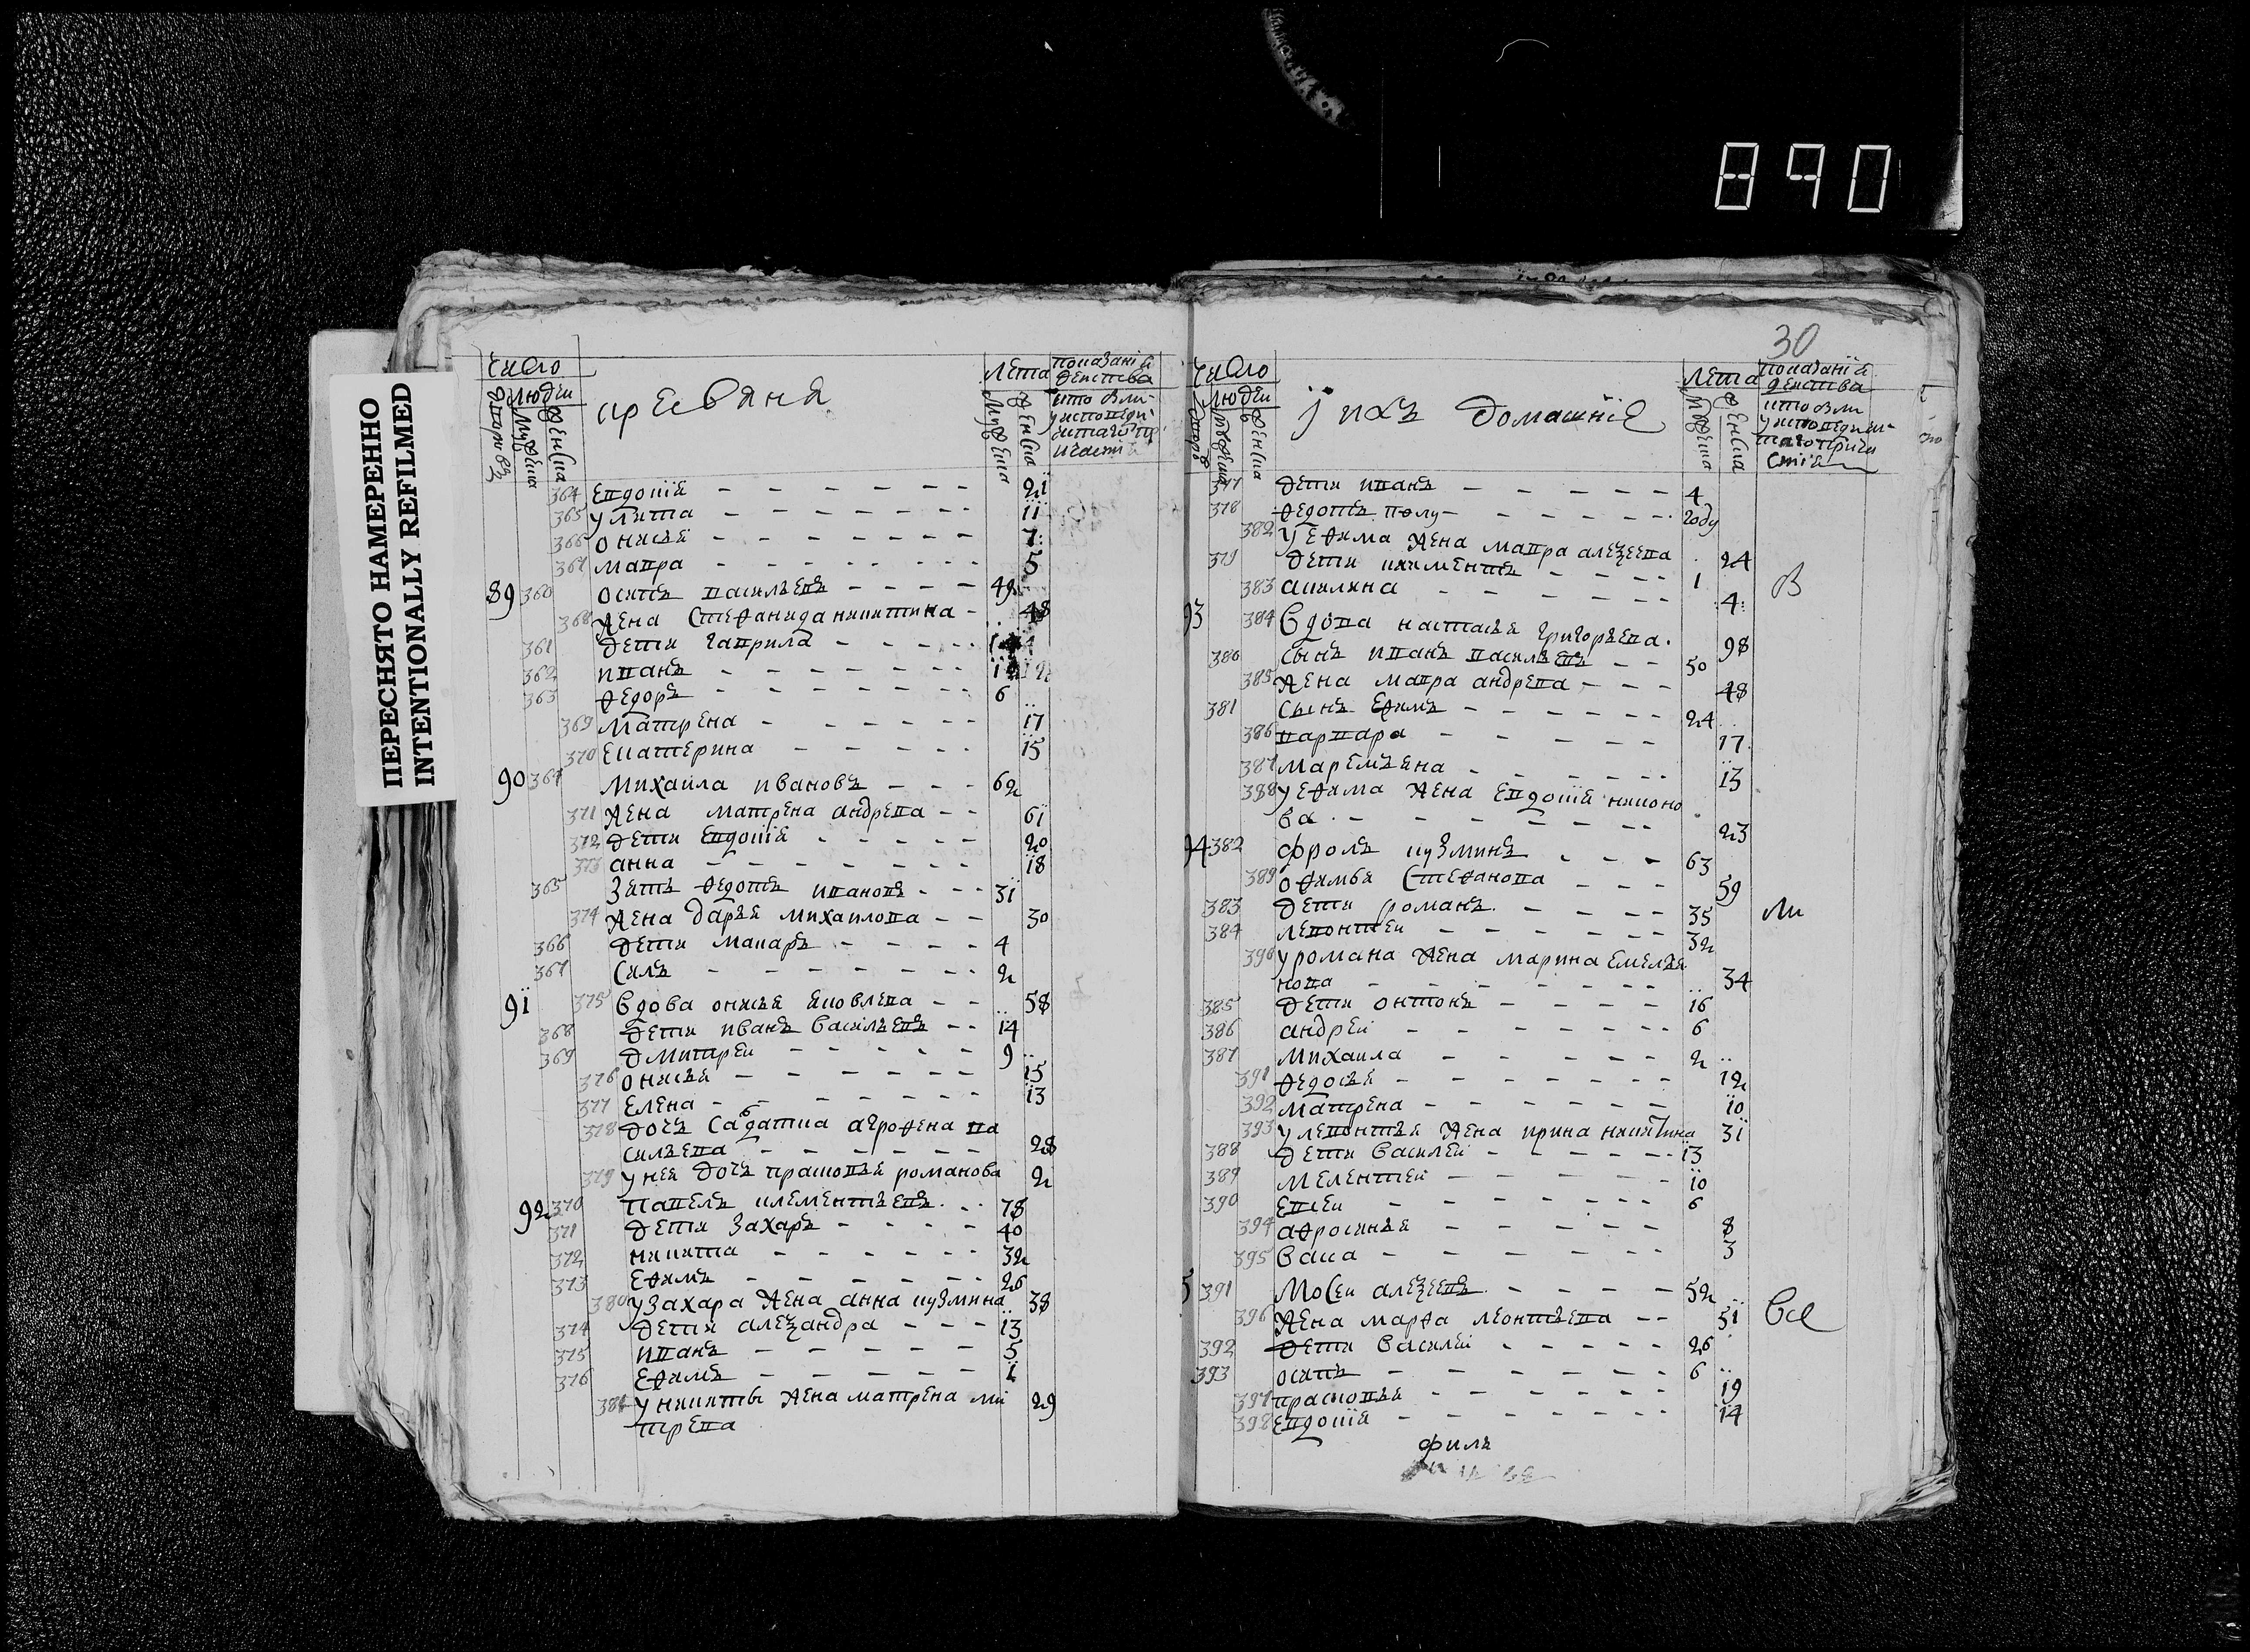 890
ПЕРЕСНЯТО НАМЕРЕННО
INTENTIONALLY REFILMED
число
людеи
дворовъ
мужеска
женска
крестьяня
лета
мужеска
женска
показаниѣ
действа
кто был
у исповеди
364 Евдокия 21
365 Улита 11
366 онисья 7
367 мавра 5
89 360 осипъ васильевъ 49
368 жена Стефанида никитина 48
361 дети гаврила
362 иванъ
363 федоръ 6
369 Матрена 17
370 Екатерина 15
90 364 Михаила ивановъ 62
371 жена матрена андрева 61
372 дети Евдокия 20
373 анна 18
365 Зять федотъ ивановъ 31
374 жена дарья михаилова 30
366 дети макаръ 4
367 Силъ 2
91 375 вдова онисья яковлева 58
368 дети иванъ васильевъ 14
369 дмитреи 9
376 онисья 15
377 Елена 13
378 дочь Садатка агрофена ва
сильева 28
379 у неи дочь прасковья романова 2
92 370 Павелъ клементьевъ 78
371 дети Захаръ 40
372 никита 32
373 Ефимъ 26
380 у захара жена анна кузмина 38
374 дети алеѯандра 13
375 иванъ 5
376 Ефимъ 1
381 у никиты жена матрена ми 29
трева
30
число
людеи
дворовъ
мужеска
женска
и ихъ домашнїе
лета
мужеска
женска
показанїѣ
действа
кто был
377 дети иванъ 4
378 федотъ полу году
382 у Ефима жена мавра алеѯеева 24
379 дети климентъ 1
383 акилина 4
В
93 384 Вдова настасья григорьева 98
380 Сынъ иванъ васильевъ 50
385 жена мавра андрева 48
381 Сынъ Ефимъ 24
386 варвара 17
387 маремьена 13
388 у ефима жена Евдокия никоно
ва 23
94 382 фролъ кузминъ 63
389 офимья Стефанова 59
383 дети романъ 35
ли
384 левонтеи 32
390 у романа жена марина Емелья
нова 34
385 дети онтонъ 16
386 андреи 6
387 михаила 2
391 федосья 12
392 матрена 10
393 у левонтья жена ирина никитина 31
388 дети василеи 13
389 мелентеи 10
390 Евсеи 6
394 афросинья 8
395 васа 3
5 391 Мосеи алеѯеевъ 52
396 жена марфа леонтьева 51
все
392 дети василеи 26
393 осипъ 6
397 прасковья 19
398 Евдокия 14
филъ